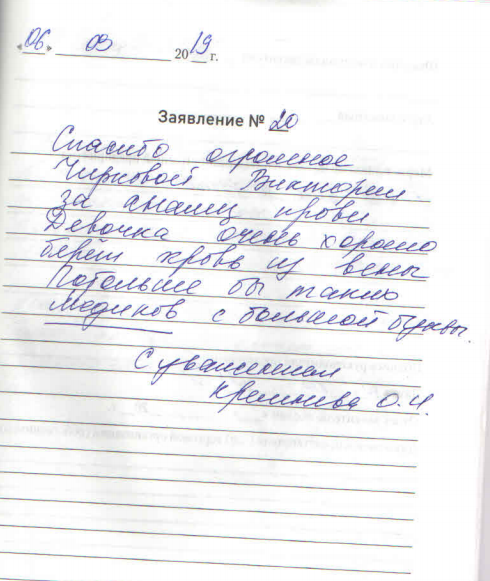 «06» 03 2019 г.
Заявление № 20
Спасибо огромное
Чирковой Виктории
за анализ крови
Девочка очень хорошо
берёт кровь из вены
Побольше бы таких
медиков с большой буквы.
С уважением
О.И.